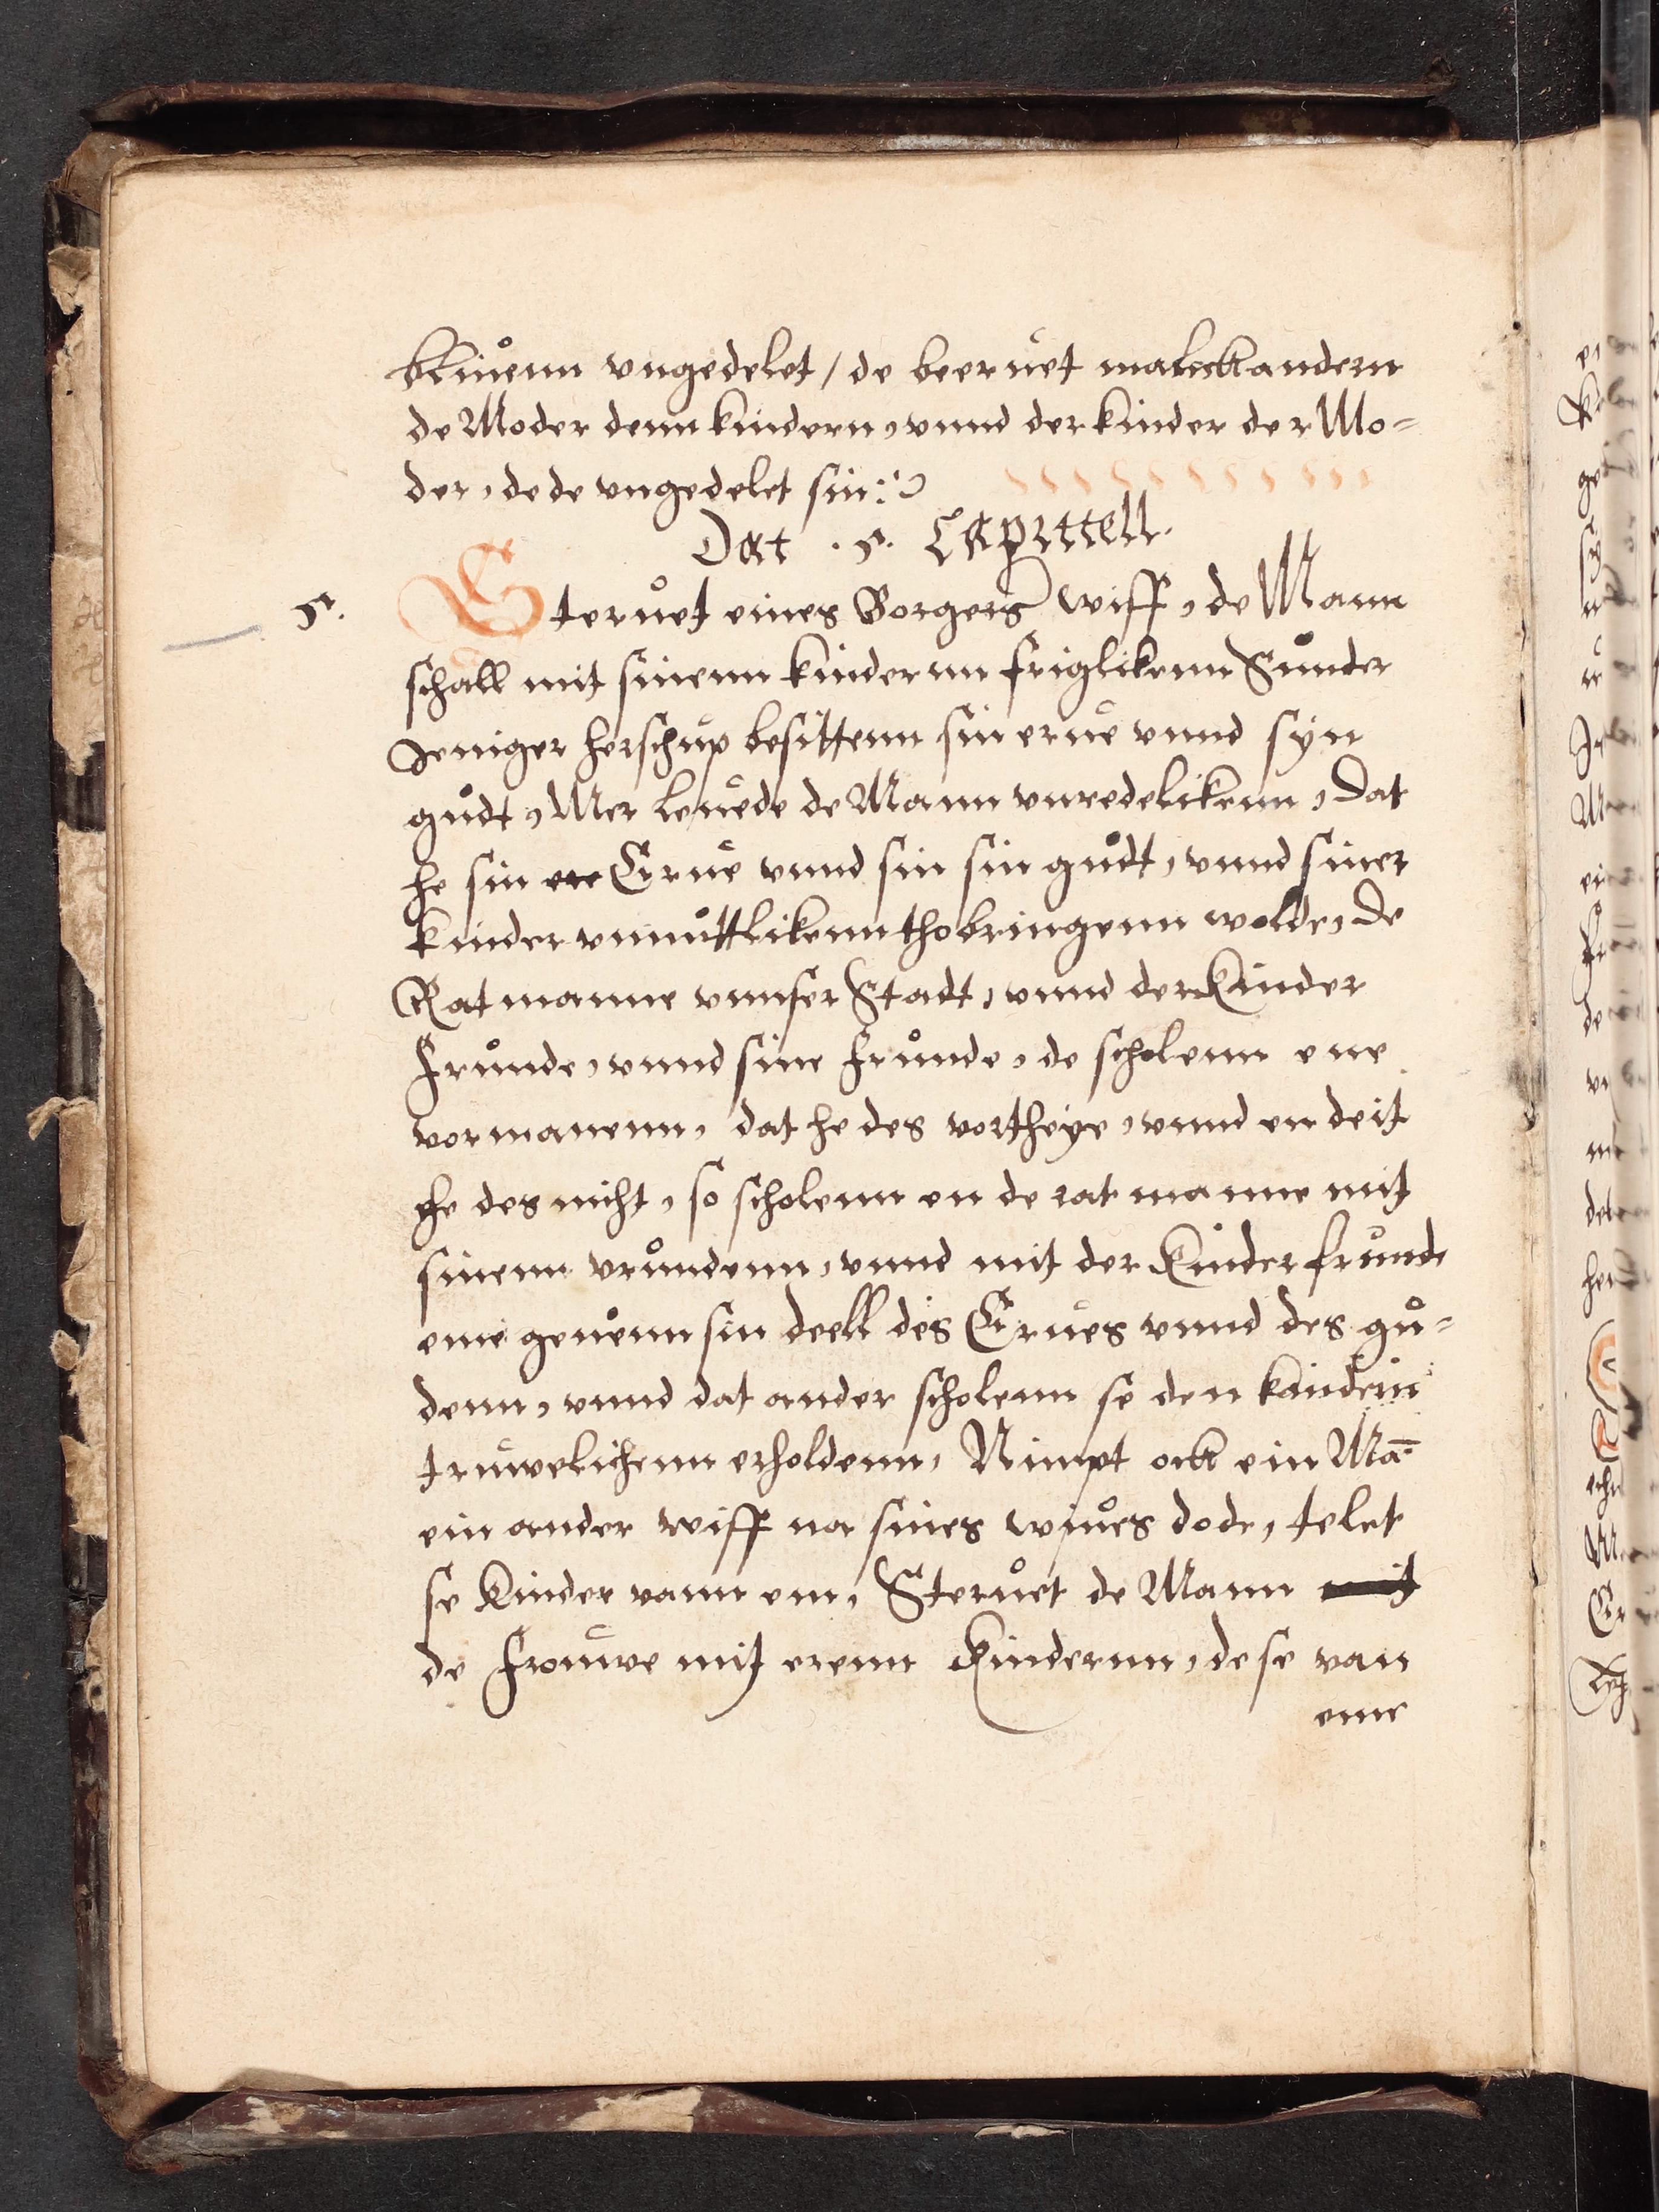 bliuenn vngedelet / de beeruet maleckandern
de Moder denn kindern, vnnd der kinder der Mo=
der, de de vngedelet sin:
Dat .5. Capittell.
5. Steruet eines Borgers wiff, de Mann
schall mit sinenn kindernn friglikenn Sunder
Jeniger herschup besittenn sin erue vnnd syn
gudt, Mer leuede de Mann vnredelikenn, dat
he sin ere Erue vnnd sin sin gudt, vnnd siner
kinder vnnuttlikenn thobringenn wolde, de
Ratmanne vnnser Stadt, vnnd der kinder
Frunde, vnnd sine frunde, de scholenn ene
vormanenn, dat he des vortheye, vnnd en deit
he des nicht, so scholenn en de ratmanne mit
sinenn vrundenn, vnnd mit der kinder frunde
eme geuenn sin deell des Erues vnnd des gu=
denn, vnnd dat ander scholenn se den kindern
truwelichenn erholdenn, Nimpt ock ein Mā
ein ander wiff na sines wiues dode, telet
se kinder vann em, Steruet de Mann mit
de frouwe mit erenn kindernn, de se van
eme